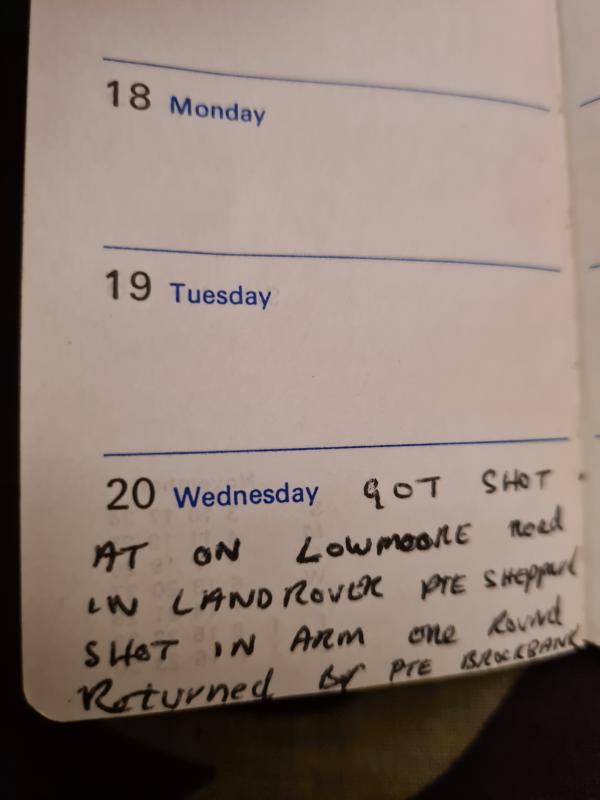 18 Monday
19 Tuesday
20 Wednesday GOT SHOT
AT ON LOWMOORE Road
IN LANDROVER PTE SHEPPARD
SHOT IN ARM ONE ROUND
Returned BY PTE BROCKBANK